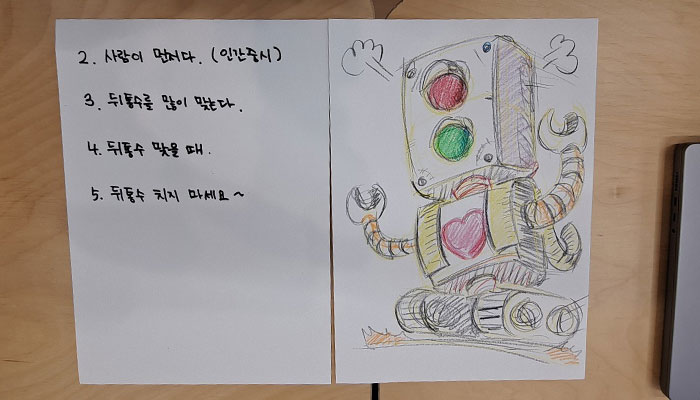 2. 사람이 먼저다. (인간중시)
3. 뒤통수를 많이 맞는다.
4. 뒤통수 맞을 때.
5. 뒤통수 치지 마세요~